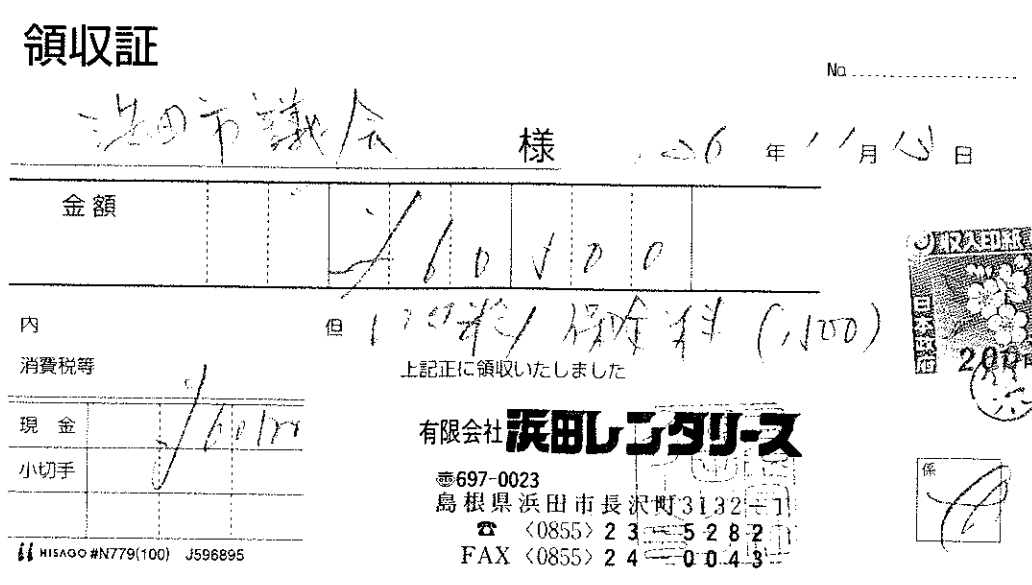 領収証
No.
浜田市議会 様 26年11月13日
金額 ¥60500
内 但 保険料 (1,500)
消費税等 上記正に領収いたしました
現金
小切手
有限会社浜田レンタリース
〠697-0023
島根県浜田市長沢町3132-1
☎〈0855〉23-5282
FAX〈0855〉24-0043
収入印紙
日本政府
200円
係
HISAGO #N779(100) J596895